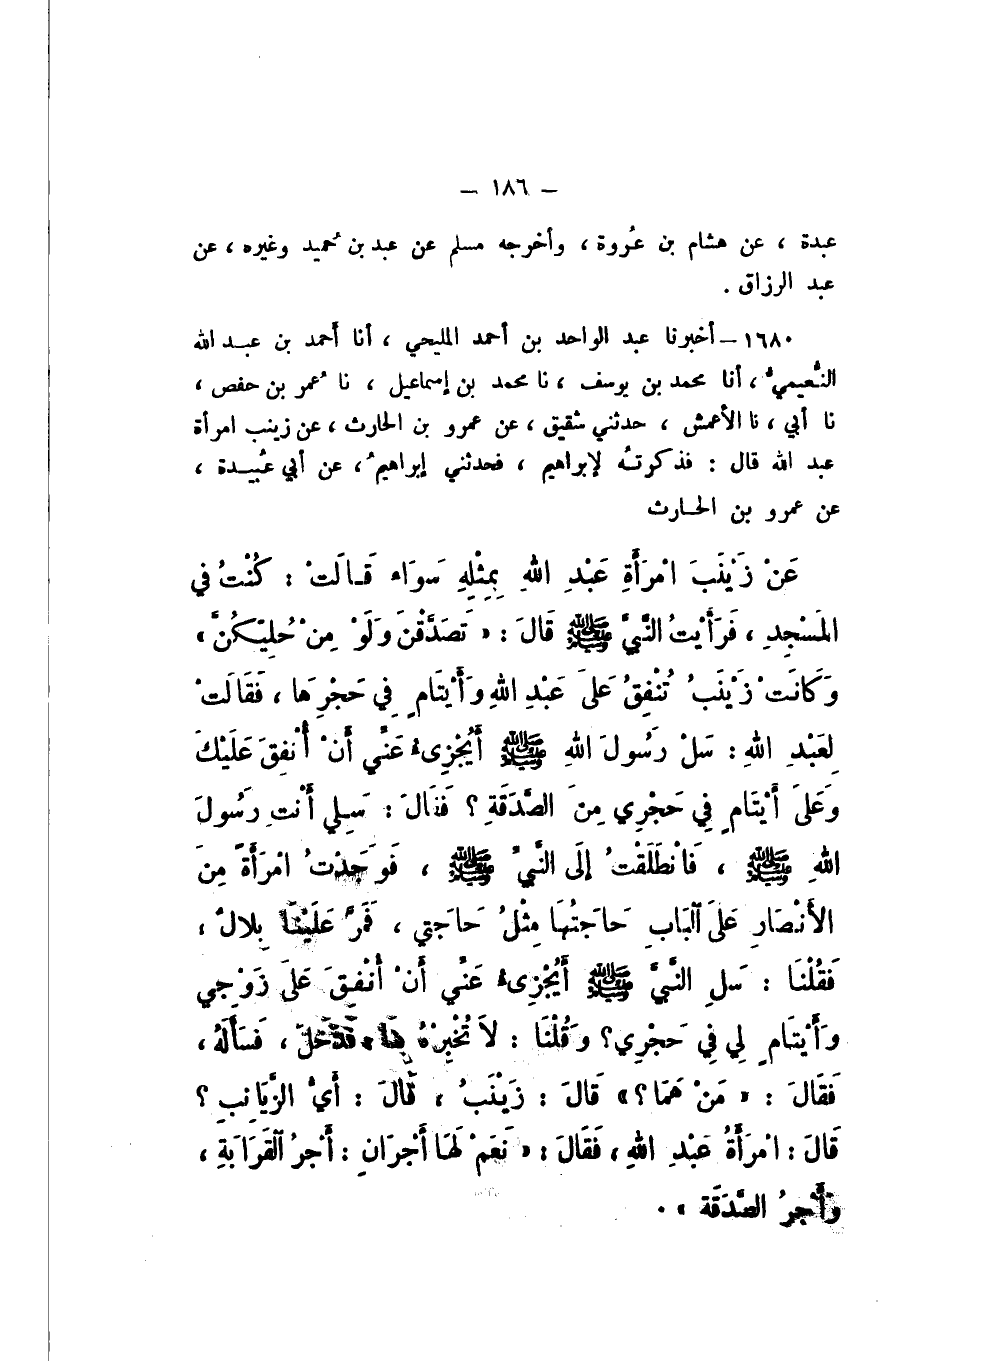 – ١٨٦ –
عبدة ، عن هشام بن عُروة ، وأخرجه مسلم عن عبد بن حُميد وغيره ، عن
عبد الرزاق .
١٦٨٠ – أخبرنا عبد الواحد بن أحمد المليحي ، أنا أحمد بن عبد الله
النُّعيميُّ ، أنا محمد بن يوسف ، نا محمد بن إسماعيل ، نا عُمر بن حفص ،
نا أبي ، نا الأعمش ، حدثني شقيق ، عن عمرو بن الحارث ، عن زينب امرأة
عبد الله قال : فذكرتُه لإبراهيم ، فحدثني إبراهيمُ ، عن أبي عُبيدة ،
عن عمرو بن الحارث
عَنْ زَيْنَبَ امْرَأَةِ عَبْدِ اللهِ بِمِثْلِهِ سَوَاء قَالَتْ : كُنْتُ في
المَسْجِدِ ، فَرَأَيْتُ النَّبيَّ ﷺ قَالَ : « تَصَدَّقْنَ وَلَوْ مِنْ حُلِيِّكُنَّ »
وَكَانَتْ زَيْنَبُ تُنْفِقُ عَلَى عَبْدِ اللهِ وَأَيْتَامٍ فِي حَجْرِهَا ، فَقَالَتْ
لِعَبْدِ اللهِ : سَلْ رَسُولَ اللهِ ﷺ أَيُجْزِىءُ عَنِّي أَنْ أُنْفِقَ عَلَيْكَ
وَعَلَى أَيْتَامٍ فِي حَجْرِي مِنَ الصَّدَقَةِ ؟ فَقَالَ : سَلِي أَنْتِ رَسُولَ
اللهِ ﷺ ، فَانْطَلَقْتُ إِلَى النَّبيِّ ﷺ ، فَوَجَدْتُ امْرَأَةً مِنَ
الأَنْصَارِ عَلَى الْبَابِ حَاجَتُهَا مِثْلُ حَاجَتِي ، فَمَرَّ عَلَيْنَا بِلَالٌ ،
فَقُلْنَا : سَلِ النَّبيَّ ﷺ أَيُجْزِىءُ عَنِّي أَنْ أُنْفِقَ عَلَى زَوْجِي
وَأَيْتَامٍ لِي فِي حَجْرِي؟ وَقُلْنَا : لاَ تُخْبِرْهُ بِنَا، فَدَخَلَ ، فَسَأَلَهُ ،
فَقَالَ : « مَنْ هُمَا ؟ » قَالَ : زَيْنَبُ ، قَالَ : أَيُّ الزَّيَانِبِ ؟
قَالَ : امْرَأَةُ عَبْدِ اللهِ ، فَقَالَ : « نَعَمْ لَهَا أَجْرَانِ : أَجْرُ الْقَرَابَةِ ،
وَأَجْرُ الصَّدَقَة » .